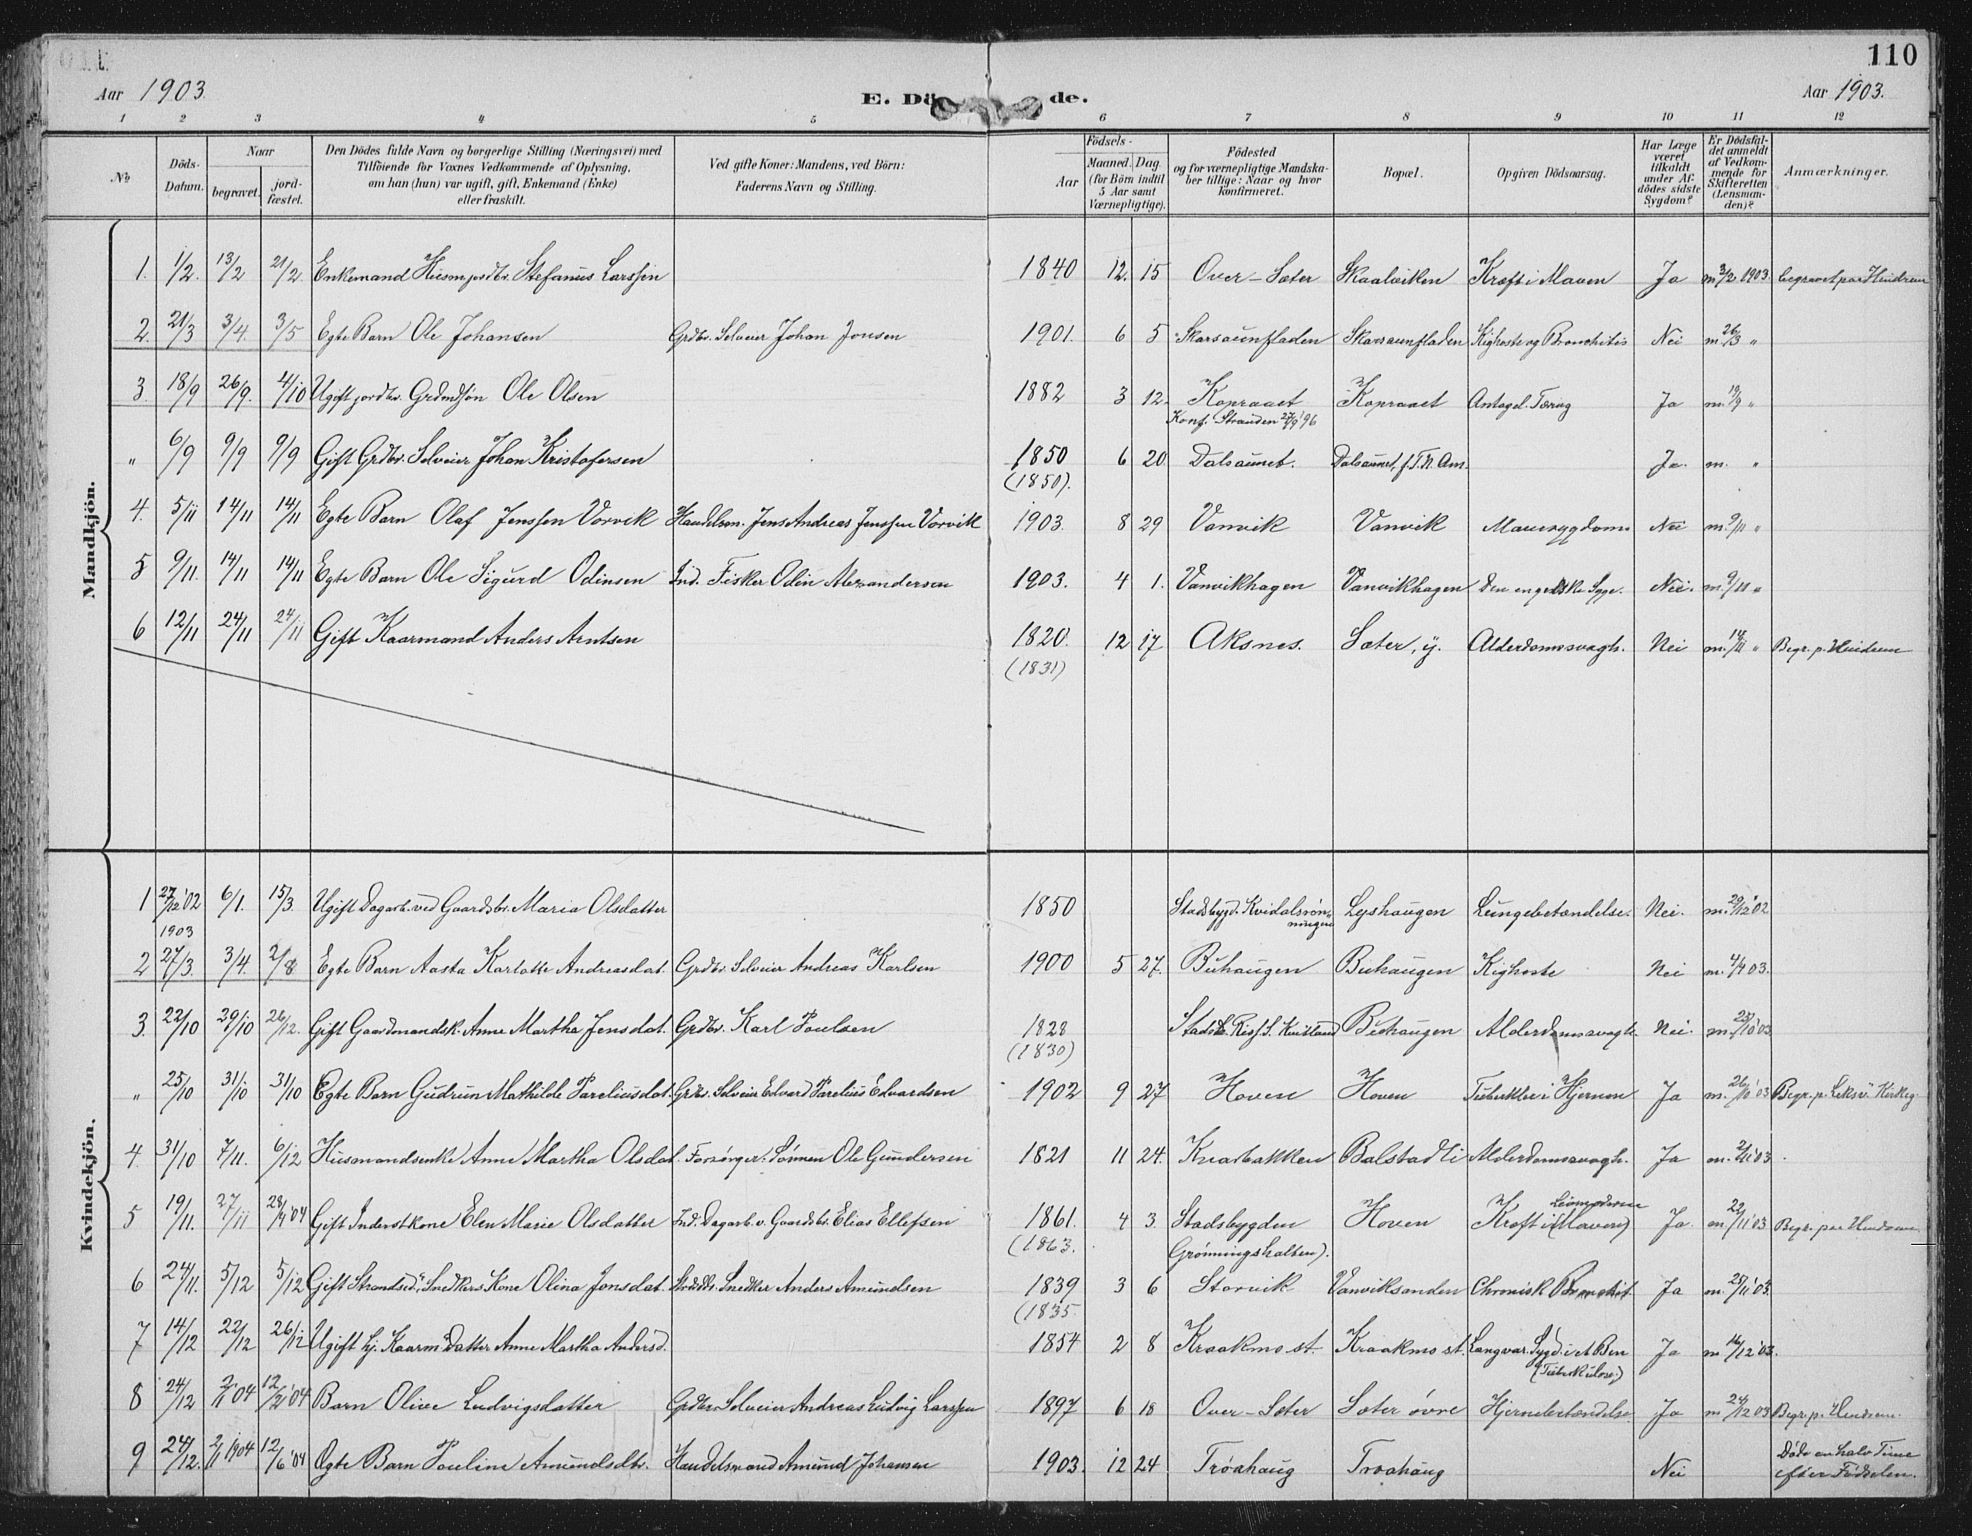 110
Aar 1903.
E. Dö de.
Aar 1903.
1 2 3 4 5 6 7 8 9 10 11 12
No
Döds-Datum.
Naar
begravet.
jord-fæstet.
Den Dödes fulde Navn og borgerlige Stilling (Næringsvei) med
Tilföiende for Voxnes Vedkommende af Oplysning,
om han (hun) var ugift, gift, Enkemand (Enke)
eller fraskilt.
Ved gifte Koner: Mandens, ved Börn:
Faderens Navn og Stilling.
Födsels-
Aar
Maaned. Dag.
(for Börn indtil
5 Aar samt
Værnepligtige).
Födested
og for værnepligtige Mandska-
ber tillige: Naar og hvor
konfirmeret.
Bopæl.
Opgiven Dödsaarsag.
Har Læge
været
tilkaldt
under Af-
dödes sidste
Sygdom?
Er Dödsfal-
det anmeldt
af Vedkom-
mende for
Skifteretten
(Lensman-
den)?
Anmærkninger.
Mandkjön.
1. 1/2. 13/2 21/2 Enkemand Husm. jordbr. Stefanus Larssen 1840 12. 15 Over-Sæter Skaalviken Kræft i Maven Ja m. 3/2 1903. begravet paa Hindrem
2. 21/3 3/4. 3/5 Egte Barn Ole Johansen Grdbr. Selveier Johan Jonsen 1901. 6 5 Skarsaunfladen Skarsaunfladen Kighoste og Bronchitis Nei m. 26/3 "
3 18/9 26/9. 4/10 Ugift jordbr. Grdmdsön Ole Olsen 1882 3 12. Kopraaet Kopraaet Antagel. Tæring Ja m. 19/9 "
Konf. Stranden 27/9 96
" 6/9 9/9 9/9 Gift Grdbr. Selveier Johan Kristofersen 1850 6 20 Dalsaunet. Dalsaunet, f. T. N. Am. Ja. m. "
(1850).
4. 5/11 14/11 14/11 Egte Barn Olaf Jenssen Vorvik Handelsm. Jens Andreas Jenssen Vorvik 1903. 8 29 Vanvik Vanvik Mavesygdom Nei m. 9/11 "
5 9/11. 14/11 14/11 Egte Barn Ole Sigurd Odinsen Ind. Fisker Odin Alexandersen 1903. 4 1. Vanvikhagen Vanvikhagen Den engelske Syge. Nei. m. 9/11 "
6 12/11 24/11 24/11 Gift Kaarmand Anders Arntsen 1820. 12 17 Aksnes. Sæter, y. Alderdomssvagh. Nei m. 14/11 " Begr. p. Hindrem
(1831)
Kvindekjön.
1 27/12 '02 6/1. 15/3 Ugift Dagarb. ved Gaardsbr. Maria Olsdatter 1850 Stadsbygd. Kvidalsrön-
ningen Lyshaugen Lungebetændelse. Nei. m. 29/12 '02
1903
2 27/3. 3/4. 2/8 Egte Barn Aasta Karlotte Andreasdat. Grdbr. Selveier Andreas Karlsen 1900 5 27. Buhaugen Buhaugen Kighoste Nei m. 4/4 03.
3. 22/10 29/10 26/12. Gift Gaardmandsk. Anne Martha Jensdat. Grdbr. Karl Poulsen 1828 Buhaugen Alderdomssvagh. Nei. m. 23/10 03
(1830)
" 25/10 31/10 31/10 Egte Barn Gudrun Mathilde Pareliusdat. Grdbr. Selveier Edvard Parelius Edvardsen 1902 9 27 Hoven Hoven Tuberkler i Hjernen Ja m. 26/10 '03 Begr. p. Leksv. Kirkeg.
4. 31/10 7/11. 6/12 Husmandsenke Anne Martha Olsdat. Forsörger: Sönnen Ole Gundersen 1821 11 24. Knarbakken Balstadli Alderdomssvagh. Ja m. 2/11 '03
5 19/11. 27/11 28/4 '04 Gift Inderstkone Elen Marie Olsdatter Ind. Dagarb. v. Gaardsbr. Elias Ellefsen 1861. 4 3. Stadsbygden Hoven Kræft i (Maven) Ja. m. 22/11 '03. Begr. paa Hindrem
(1863. Grönningshalten).
6 24/11. 5/12 5/12 Gift Strandsid., Snedkers Kone Olina Jonsdat. Strdsdbr. Snedker Anders Amundsen 1839 3 6 Storvik Vanviksanden Chronisk Bronchit. Ja m. 25/11 '03.
(1835.
7 14/12 22/12 26/12 Ugift hj. Kaarm. Datter Anne Martha Andersd. 1854 2 8 Kraakmo st. Kraakmo st. Langvar. Sygd. i et Ben Ja m 16/12 '03.
(Tuberkulose.)
8 24/12 2/1 04 12/2 '04 Barn Olive Ludvigsdatter Grdbr. Selveier Andreas Ludvig Larssen 1897 6 18 Over-Sæter Sæter övre Hjernebetændelse Ja m 24/12 03 Begr. p. Hindrem.
9 24/12. 2/1 1904 12/6 '04 Egte Barn Pauline Amundsdtr. Handelsmand Amund Johansen 1903. 12 24 Tröahaug Troahaug Nei Döde en halv Time
efter Födselen.